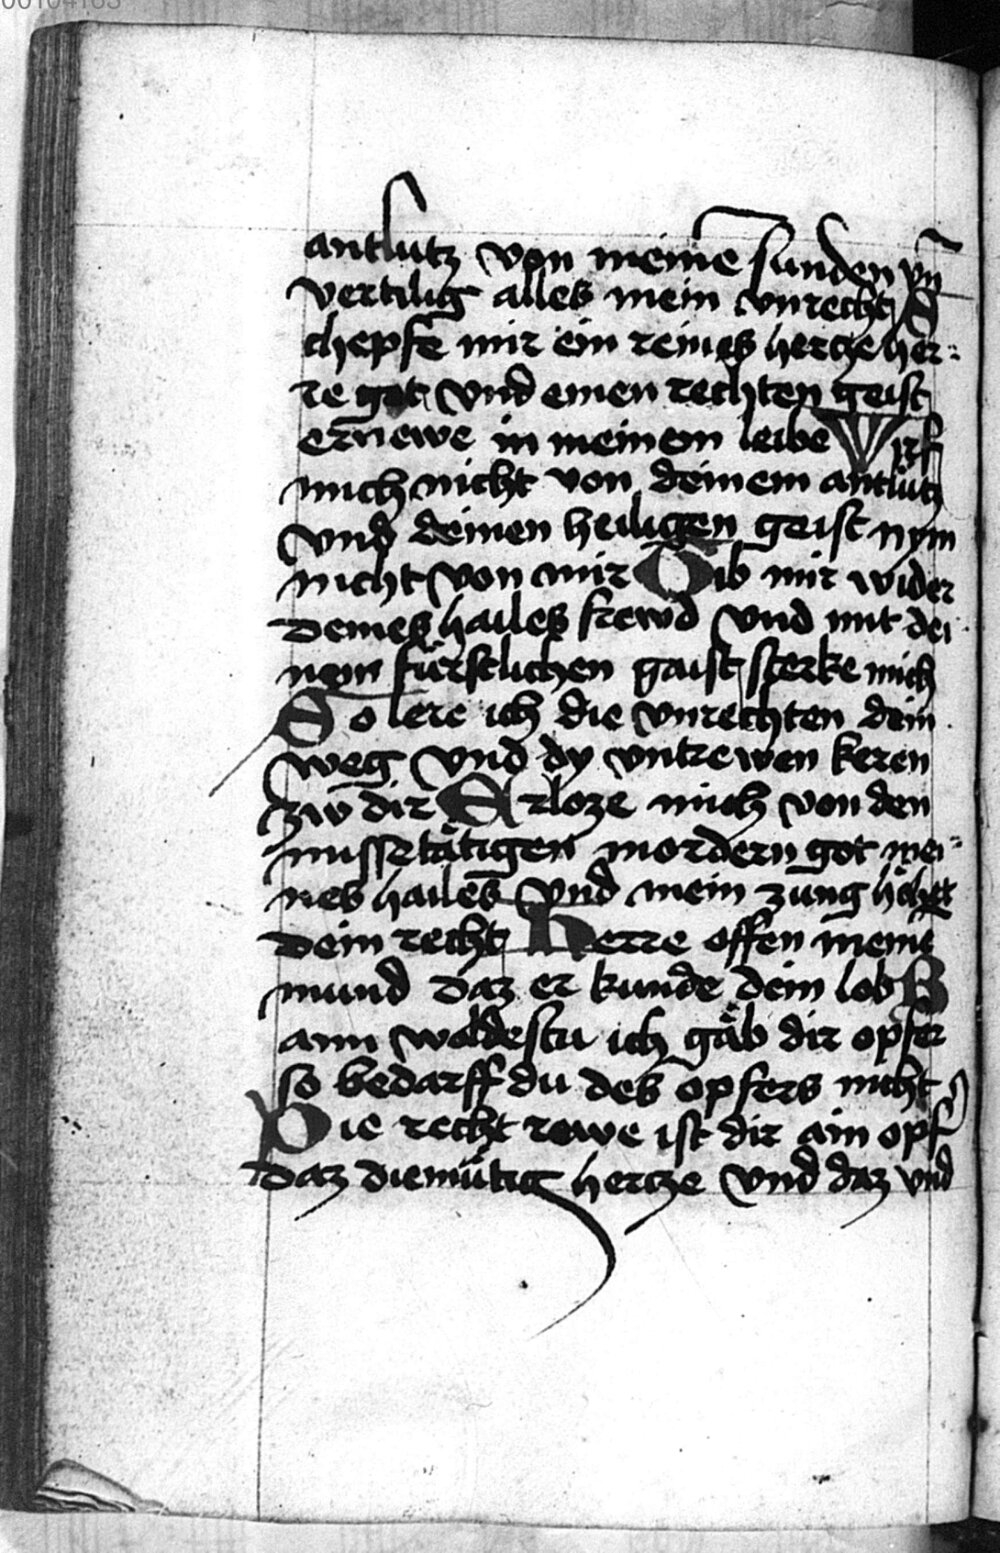 00104165
antlutz von meinē sunden vn̄
vertilig alles mein vnrecht S
chepfe mir ein reines hertze her-
re got vnd einen rechten geist
ernewe in meinem leibe Wirf
mich nicht von deinem antlütz
vnd deinen heiligen geist nym
nicht von mir Gib mir wider
deines hailes frewd vnd mit dei
nem fürstlichen gaist sterke mich
So lere ich die vnrechten dein
weg vnd dy vntrewen keren
zw dir Erloze mich von den
missetätigen mordern got mei-
nes hailes vnd mein zung
dein recht Herre offen meinē
mund daz er kunde dein lob W
ann woldestu ich gäb dir opfer
so bedarff du des opfers nicht
Die recht rewe ist dir ain opf
daz diemütig hertze vnd daz vnd